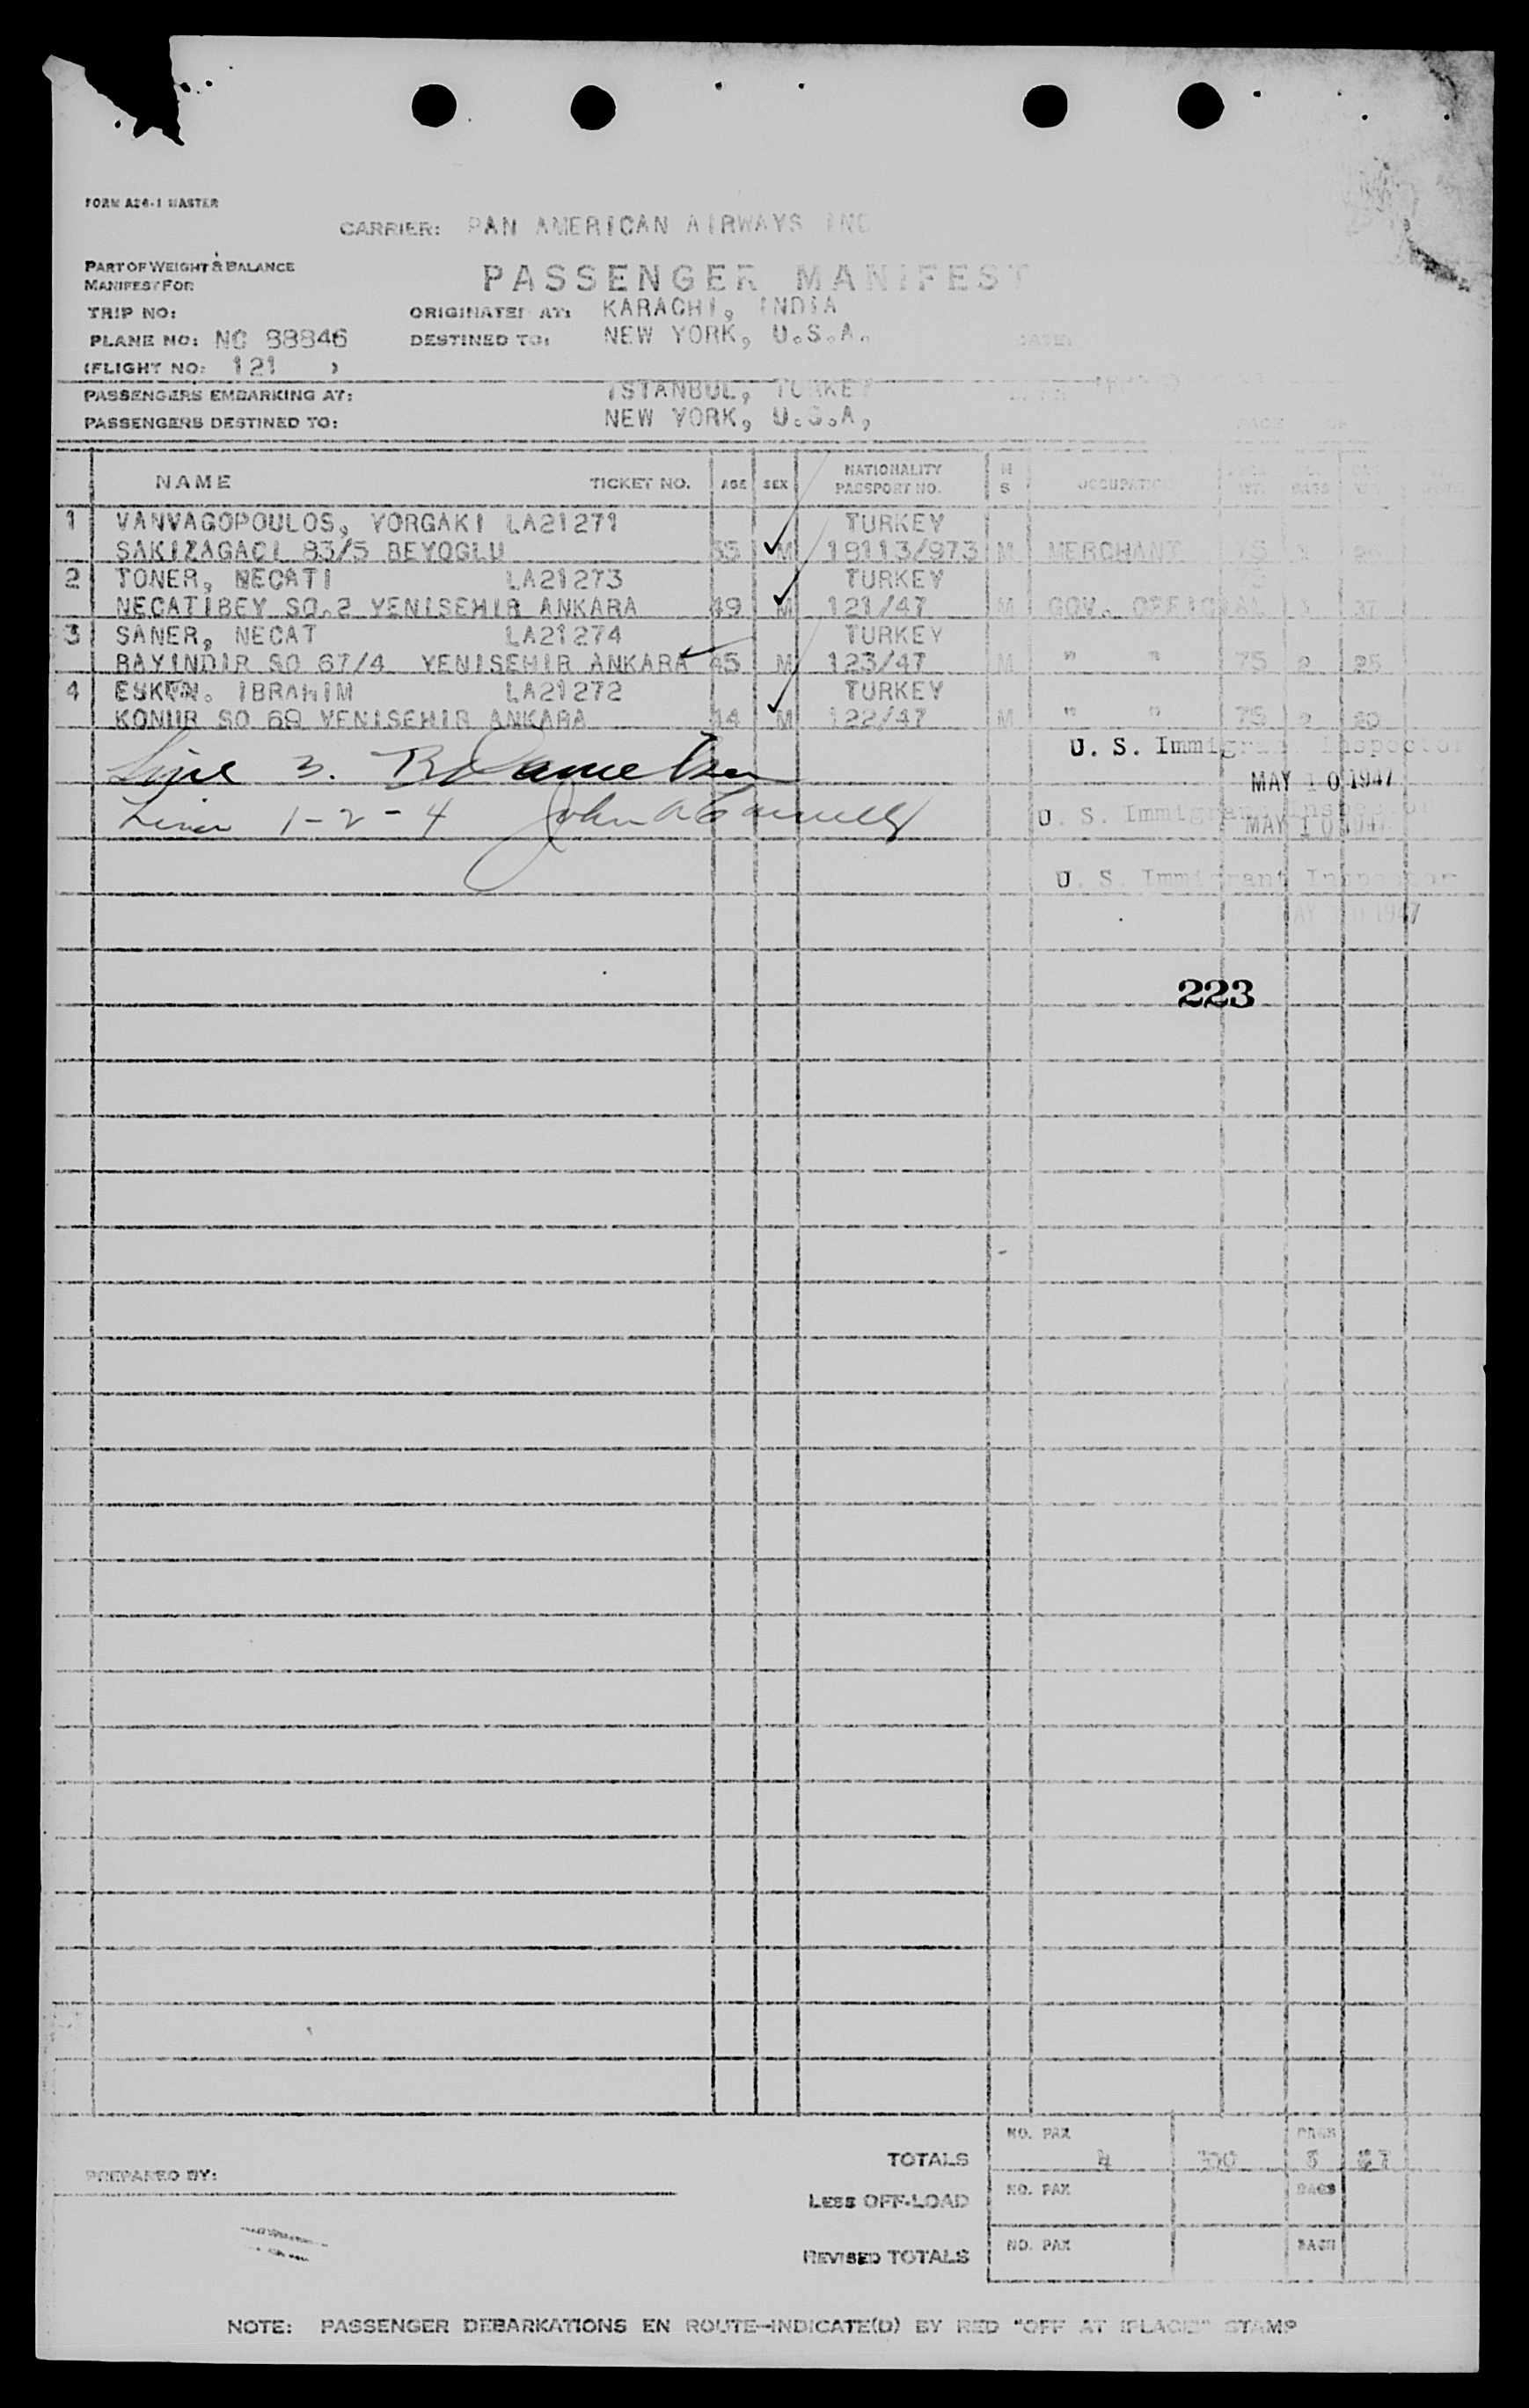 FORM A24-1 MASTER
CARRIER: PAN AMERICAN AIRWAYS INC
PART OF WEIGHT & BALANCE
MANIFEST FOR
PASSENGER MANIFEST
TRIP NO:
ORIGINATED AT: KARACHI, INDIA
PLANE NO: NC 88846
DESTINED TO: NEW YORK, U.S.A.
(FLIGHT NO: 121 )
PASSENGERS EMBARKING AT: ISTANBUL, TURKEY
PASSENGERS DESTINED TO: NEW YORK, U.S.A,
NAME TICKET NO. AGE SEX NATIONALITY PASSPORT NO. M S OCCUPATION
1 VANVAGOPOULOS, YORGAKI LA21271 TURKEY
SAKIZAGACI 83/5 BEYOGLU M 18113/973 M MERCHANT
2 TONER, NECATI LA21273 TURKEY
NECATIBEY SO.2 YENISEHIR ANKARA 49 M 121/47 M GOV. OFFICIAL 37
3 SANER, NECAT LA21274 TURKEY
BAYINDIR SO 67/4 YENISEHIR ANKARA 45 M 123/47 M " " 75 2 25
4 IBRAHIM LA21272 TURKEY
KONUR SO 69 YENISEHIR ANKARA 44 M 122/47 M " " 75 2 20
Line 3.
U. S. Immigrant Inspector
MAY 10 1947
Lines 1-2-4 John A
U. S. Immigrant Inspector
MAY 10 1947
U. S. Immigrant Inspector
MAY 10 1947
223
TOTALS NO. PAX 4
PREPARED BY:
LESS OFF-LOAD NO. PAX BAGS
REVISED TOTALS NO. PAX BAGS
NOTE: PASSENGER DEBARKATIONS EN ROUTE-INDICATE(D) BY RED "OFF AT (PLACE)" STAMP